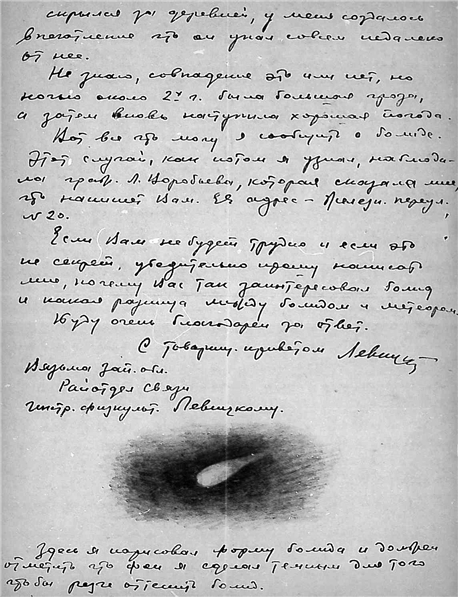 скрылся за деревней, у меня создалось
впечатление что он упал совсем недалеко
от нее.
Не знаю, совпадение это или нет, но
ночью около 2х г. была большая гроза,
а затем вновь наступила хорошая погода.
Вот все что могу я сообщить о болиде.
Этот случай, как потом я узнал, наблюда-
ла граж. Л. Воробьева, которая сказала мне,
что напишет Вам. Её адрес – переул.
№ 20.
Если Вам не будет трудно и если это
не секрет, убедительно прошу написать
мне, почему Вас так заинтересовал болид
и какая разница между болидом и метеором.
Буду очень благодарен за ответ.
С товарищ. приветом Левицкий
Вязьма Зап. обл.
Райотдел Связи
инстр. физкульт. Левицкому.
Здесь я нарисовал форму болида и должен
отметить что фон я сделал темным для того
что бы резче оттенить болид.